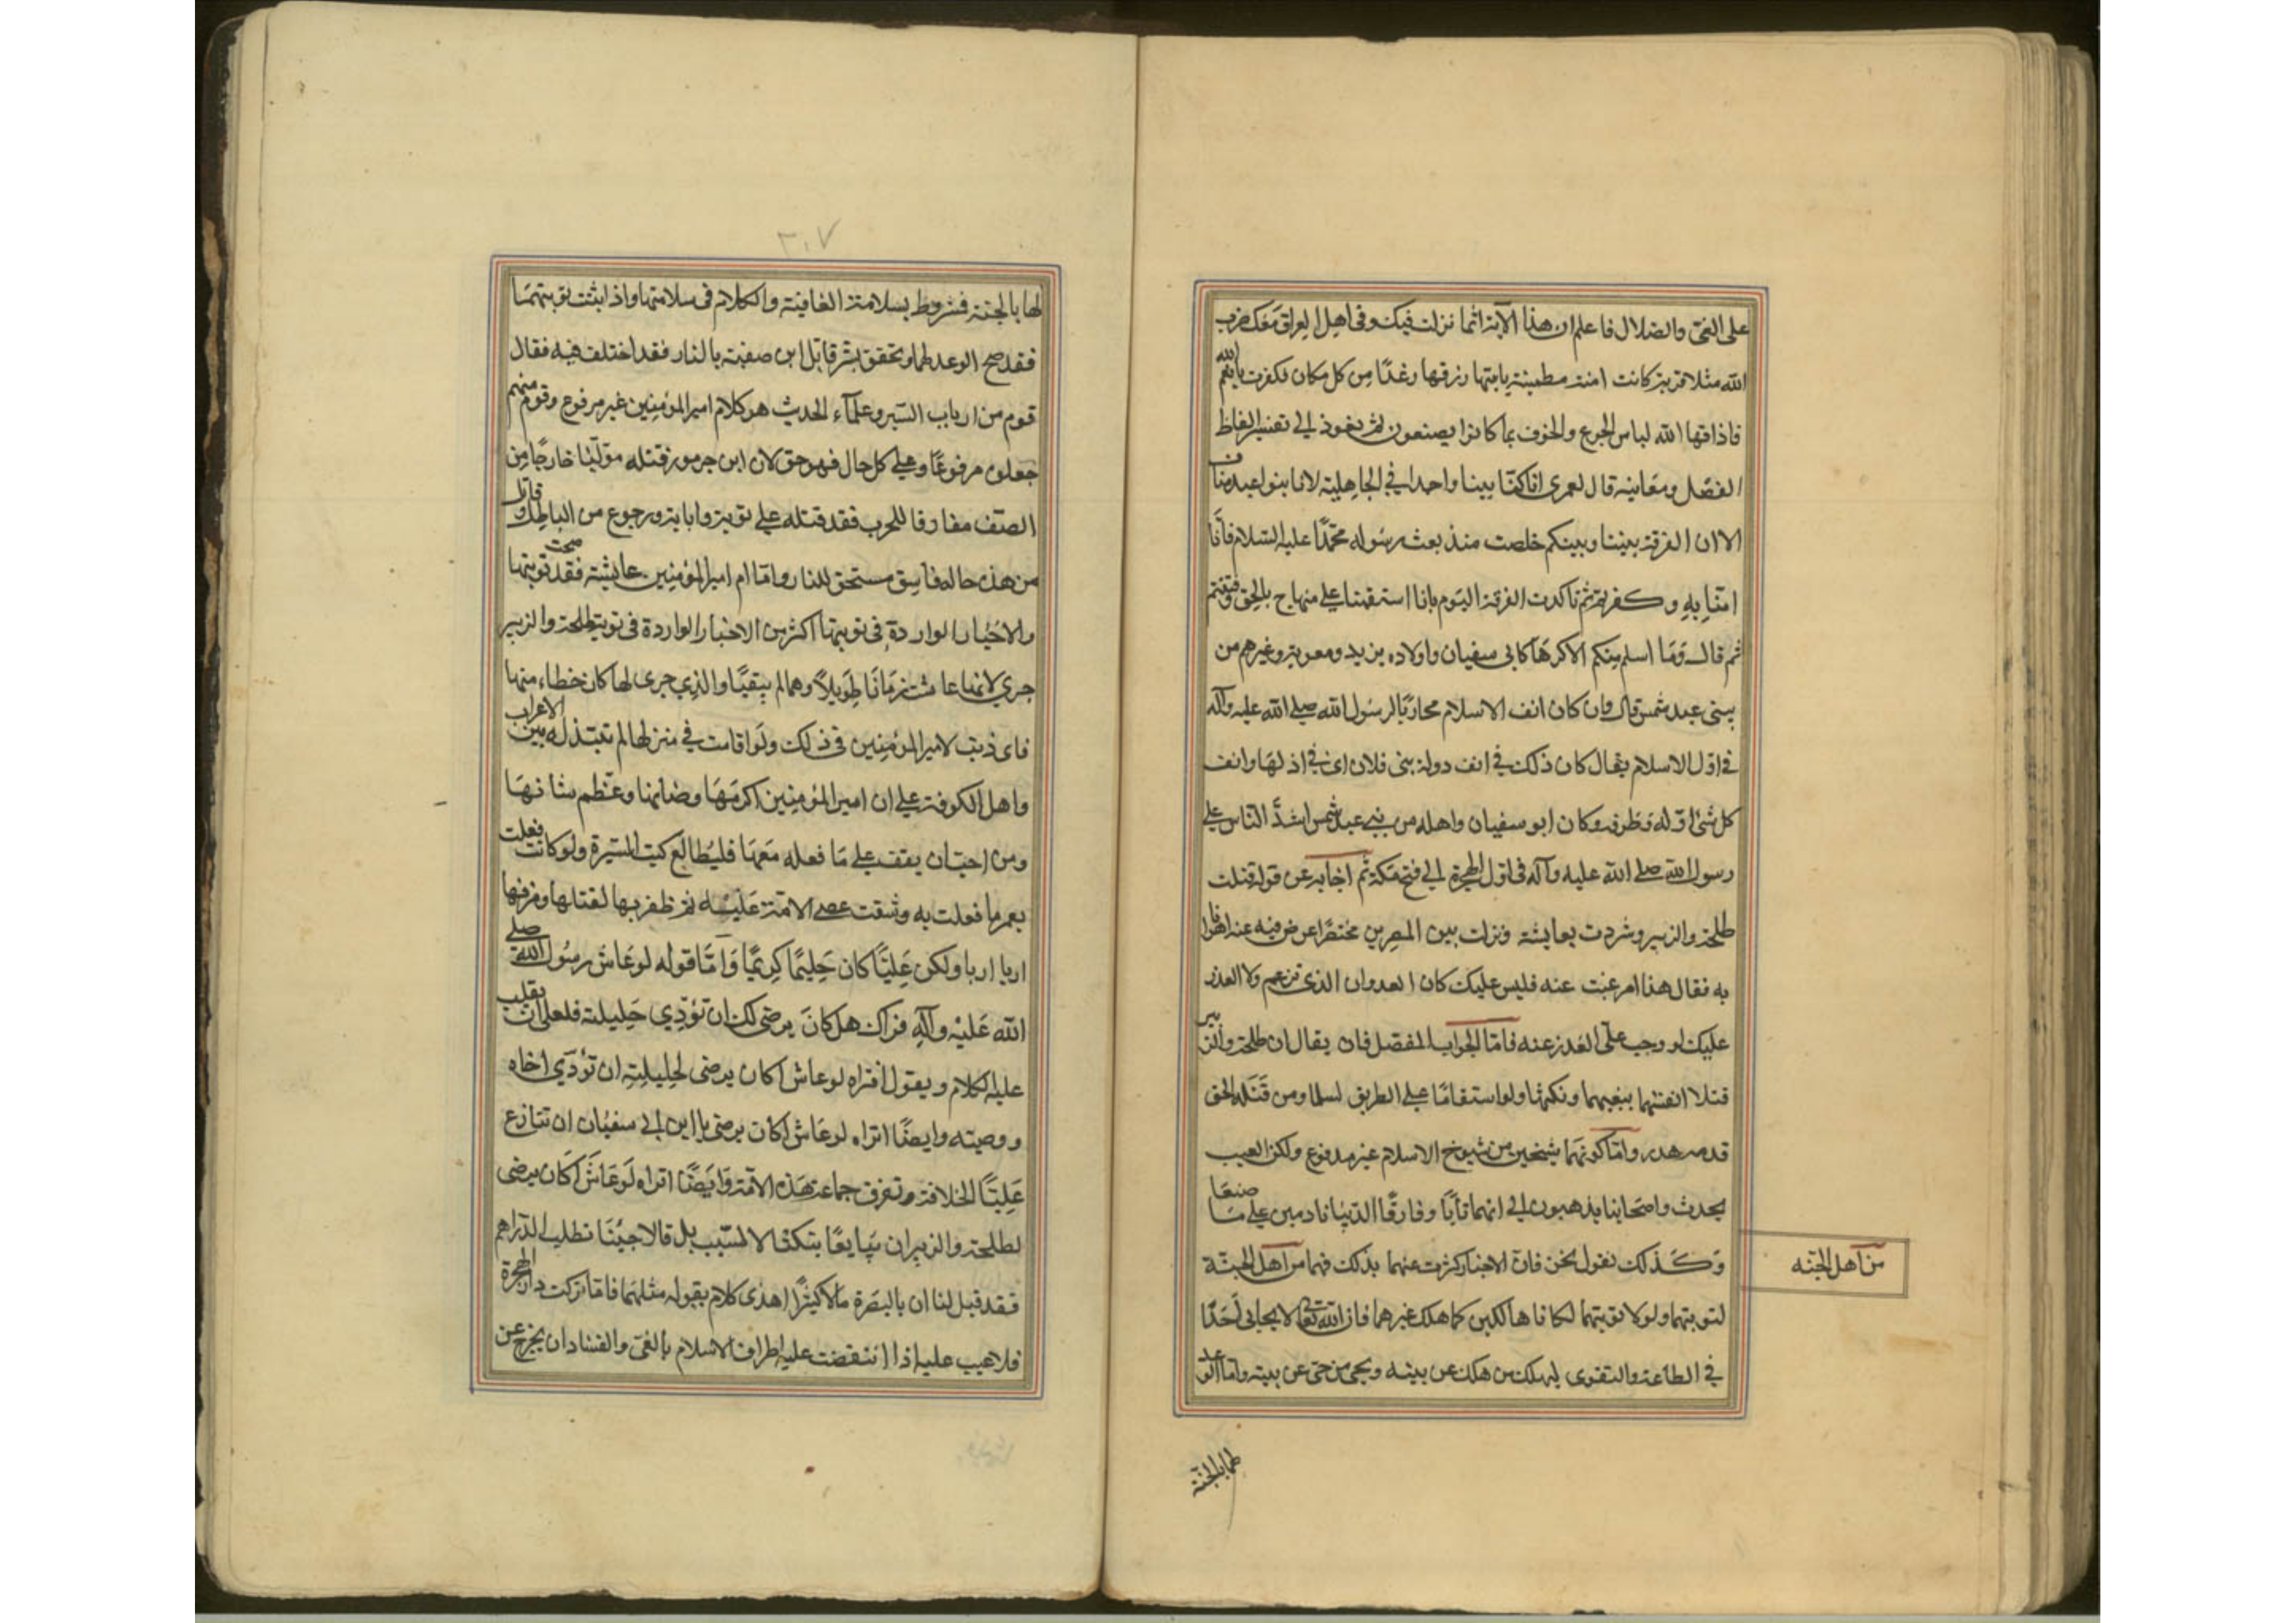 على الغى والضلال فاعلم ان هذا الآية انما نزلت فيك وفى اهل العراق معك ضرب
الله مثلا قرية كانت امنة مطمئنة ياتيها رزقها رغدًا من كل مكان فكفرت بانعم الله
فاذاقها الله لباس الجوع والخوف بما كانوا يصنعون ثم نعوذ الى تفسير الفاظ
الفصل ومعانيه قال لعمرى اناكنّا بيتا واحدا في الجاهلية لانا بنو عبد مناف
الا ان الفرقة بيننا وبينكم خلصت منذ بعث رسوله محمّدًا عليه السلام فانّا
امنّا بِهِ وكفرتم ثم تاكدت الفرقة اليوم بانا استقمنا على منهاج بالحق وفتنتم
ثم قال وَمَا اسلم منكم الاكرهًا كابى سفيان واولاده يزيد ومعوية وغيرهم من
بنى عبد شمس قال وان كان انف الاسلام محاربًا لرسول الله صلى الله عليه وآله
فى اوّل الاسلام يقال كان ذلك في انف دولة بنى فلان اى فى اذ لهَا وانف
كل شئ اوّله وَظرفه وكان ابو سفيان واهله من بنى عبد شمس اشدَّ الناس على
رسول الله صلى الله عليه وآله فى اوّل الهجرة الى فتح مكة ثم اجابه عن قوله قتلت
طلحة والزبير وشردت بعايشة ونزلت بين المصرين مختصرًا عرض فيه عند اهوا
به فقال هذا امر غبت عنه فليس عليك كان العدوان الذى تزعم ولا العذر
عليك لو وجب علىّ العذر عنه فامّا الجواب المفصل فان يقال ان طلحة والزبير
قتلا انفسهما ببغيهما ونكثها ولو استقامًا على الطريق لسلما ومن قَتَله الحق
قدمه هدر وامّا كونهما شيخين من شيوخ الاسلام غير مدفوع ولكن العيب
يحدث واصحابنا يذهبون الى انهما تابَا وفارقًا الدنيا نادمين على مَا صنعَا
وكذلك نقول نحن فان الاخبار كثرت عنهما بذلك فهما من اهل الجنة
من اهل الجنه
لتوبتهما ولولا توبتهما لكانا هالكين كما هلك غيرهما فان الله تعا لا يحابى اَحَدًا
في الطاعة والتقوى ليهلك من هلك عن بينه ويحيى من حىّ عن بينه وامّا الوعد
لهما بالجنّة
٣٠٧
لها بالجنة فشروط بسلامة العاقبة والكلام فى سلامتها واذا ثبتت توبتهمَا
فقد صح الوعد لهما وتحقق بشر قاتل ابن صفية بالنار فقد اختلف فيه فقال
قوم من ارباب السّير وعلمآء الحديث هو كلام امير المؤمنين غير مرفوع وقوم منهم
جعلوه مرفوعًا وعلى كل حال فهو حق لان ابن جرموز قتله مولّيًا خارجًا من
الصّف مفارقا للحرب فقد قتله على توبة وانابة ورجوع من الباطل وقاتل
من هذه حاله فاسق مستحق للنار وامّا ام امير المؤمنين عايشة فقد صحت توبتها
والاخبار الواردة فى توبتها اكثر من الاخبار الواردة فى توبة طلحة والزبير
جرى لانها عاشت زمَانًا طويلاً وهما لم يبقيَا والذي جرى لها كان خطاء منها
فاى ذنب لامير المؤمنين فى ذلك ولَو اقامت في منزلها لم تبتذل بين الاعراب
واهل الكوفة على ان امير المؤمنين اكرمَهَا وصَانها وعَظم شانهَا
ومن احبّ ان يقف على مَا فعله مَعَهَا فليُطالع كتب السّيرة ولو كانت فعلت
بعمر ما فعلت به وشقت عصى الامة عَليْه ثم ظفر بها لقتلها ومزقها
اربا اربا ولكن عَليًّا كان حَليمًا كريمًا وَامّا قوله لو عَاش رسُول الله صلى
الله عَليْه وآلِه فتراك هل كانَ يرضى لك ان تؤذي حَليلته فلعلى ان يقلب
عليه الكلام ويقول افتراه لو عاش اكان يرضى لحليلتِه ان تؤذي اخاه
ووصيته وايضًا اتراه لو عَاش اكان يرضى يا ابن ابى سفيُان ان تنازع
عَليّا الخلافة وتفرق جماعة هَذه الامّة وَايَضًا اتراه لَو عَاش اَكَان يرضى
لطلحة والزبير ان يبايعًا ينكثا لا لسَبب بل قالا جيئنَا نطلب الدّراهم
فقد قيل لنا ان بالبصَرة مالاً كثيرًا اهذى كلام يقوله مثلهما فامّا تركت دار الهجرة
فلا عيب عليه اذا انتقضت عليه اطراف الاسلام بالغىّ والفساد ان يخرج عن